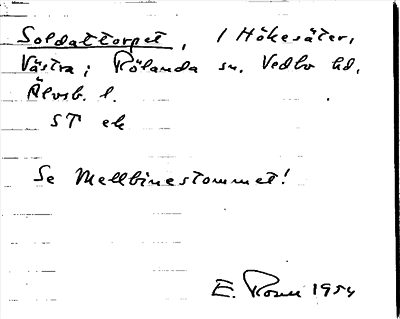 Soldattorpet, i Hökesäter,
Västra; Rölanda sn. Vedbo hd.
Älvsb. l.
ST ek
Se Mellbinestommet!
E. Rosen 1954